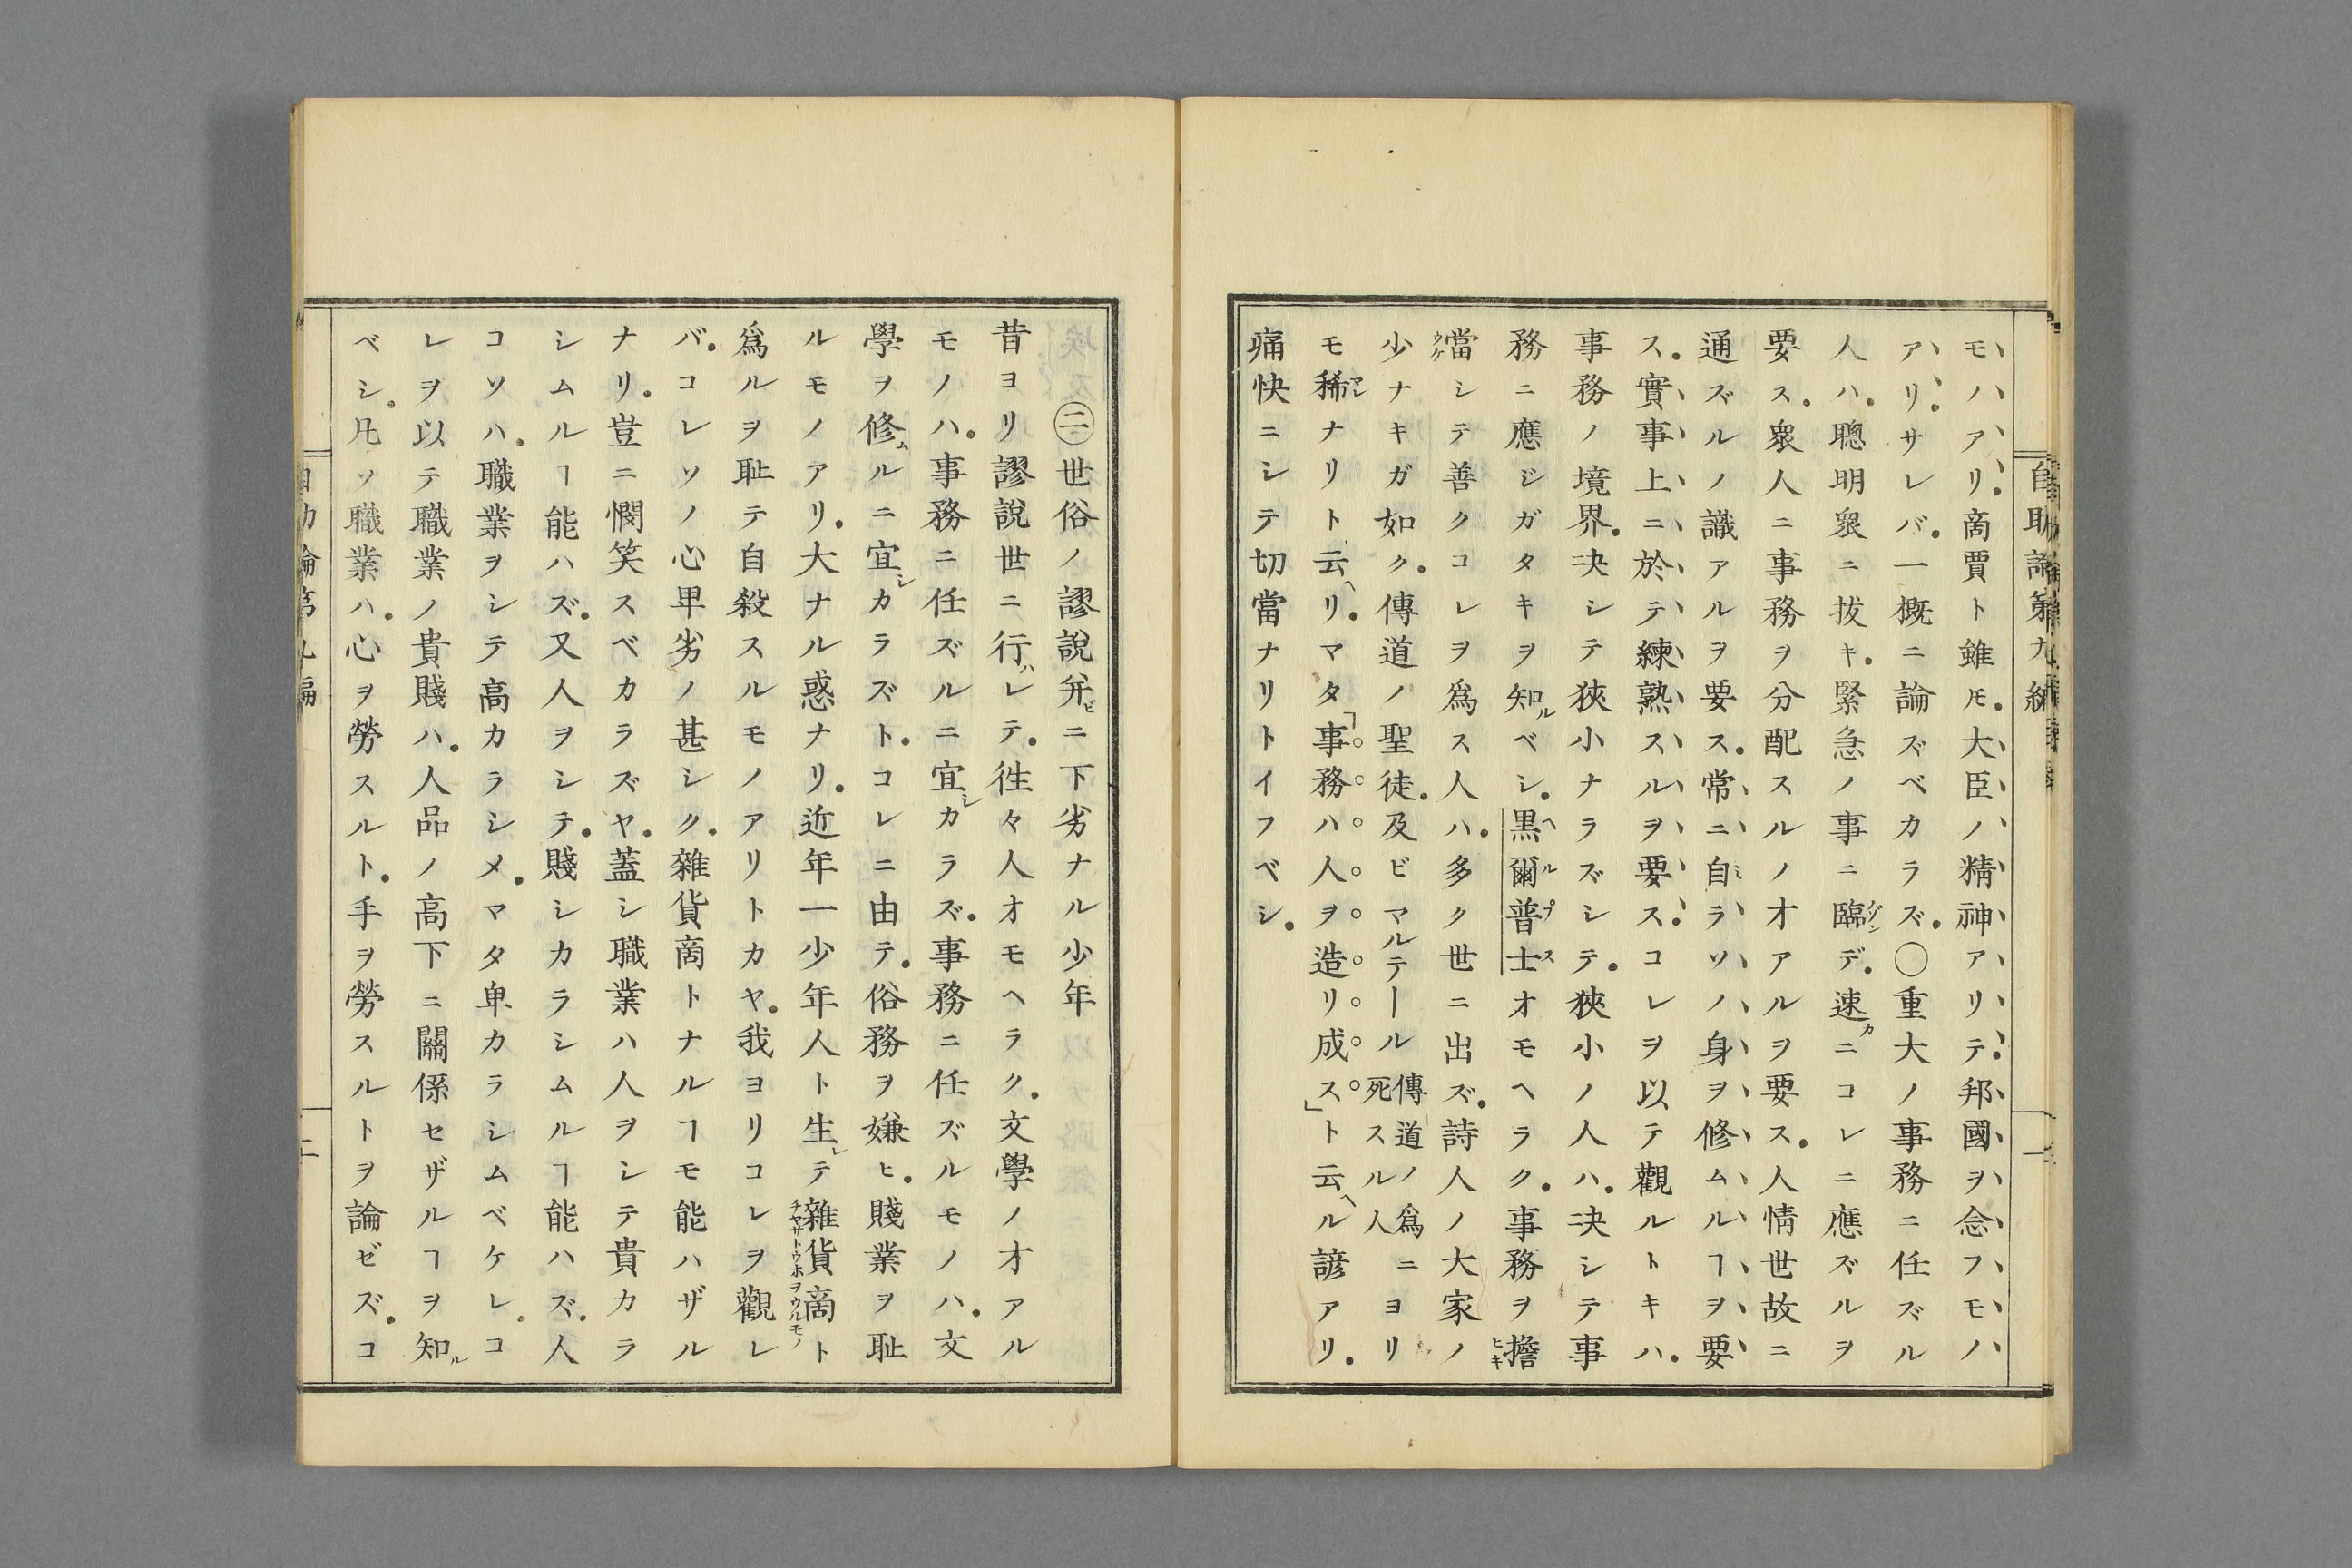 自助論第九編
一
モノアリ。商賈ト雖𪜈。大臣ノ精神アリテ。邦國ヲ念フモノ
アリ。サレバ。一概ニ論ズベカラズ。〇重大ノ事務ニ任ズル
人ハ。聰明衆ニ拔キ。緊急ノ事ニ臨デ。速ニコレニ應ズルヲ
要ス。衆人ニ事務ヲ分配スルノ才アルヲ要ス。人情世故ニ
通ズルノ識アルヲ要ス。常ニ自ラソノ身ヲ修ムルヿヲ要
ス。實事上ニ於テ練熟スルヲ要ス。コレヲ以テ觀ルトキハ。
事務ノ境界。决シテ狹小ナラズシテ。狹小ノ人ハ。决シテ事
務ニ應ジガタキヲ知ルベシ。黒爾普士オモヘラク。事務ヲ擔
當シテ善クコレヲ爲ス人ハ。多ク世ニ出ズ。詩人ノ大家ノ
少ナキガ如ク。傳道ノ聖徒。及ビマルテール傳道ノ爲ニヨリ死スル人
モ稀ナリト云ヘリ。マタ「事務ハ人ヲ造リ成ス」ト云ヘル諺アリ。
痛快ニシテ切當ナリトイフベシ。
㊁世俗ノ謬説幷ビニ下劣ナル少年
昔ヨリ謬説世ニ行ハレテ。徃々人オモヘラク。文學ノ才アル
モノハ。事務ニ任ズルニ宜シカラズ。事務ニ任ズルモノハ。文
學ヲ修ムルニ宜シカラズト。コレニ由テ。俗務ヲ嫌ヒ。賤業ヲ耻
ルモノアリ。大ナル惑ナリ。近年一少年人ト生レテ雜貨商ト
爲ルヲ耻テ自殺スルモノアリトカヤ。我ヨリコレヲ觀レ
バ。コレソノ心卑劣ノ甚シク。雜貨商トナルヿモ能ハザル
ナリ。豈ニ憫笑スベカラズヤ。蓋シ職業ハ人ヲシテ貴カラ
シムルヿ能ハズ。又人ヲシテ。賤シカラシムルヿ能ハズ。人
コソハ。職業ヲシテ高カラシメ。マタ卑カラシムベケレ。コ
レヲ以テ職業ノ貴賤ハ。人品ノ高下ニ關係セザルヿヲ知ル
ベシ。凡ソ職業ハ。心ヲ勞スルト。手ヲ勞スルトヲ論ゼズ。コ